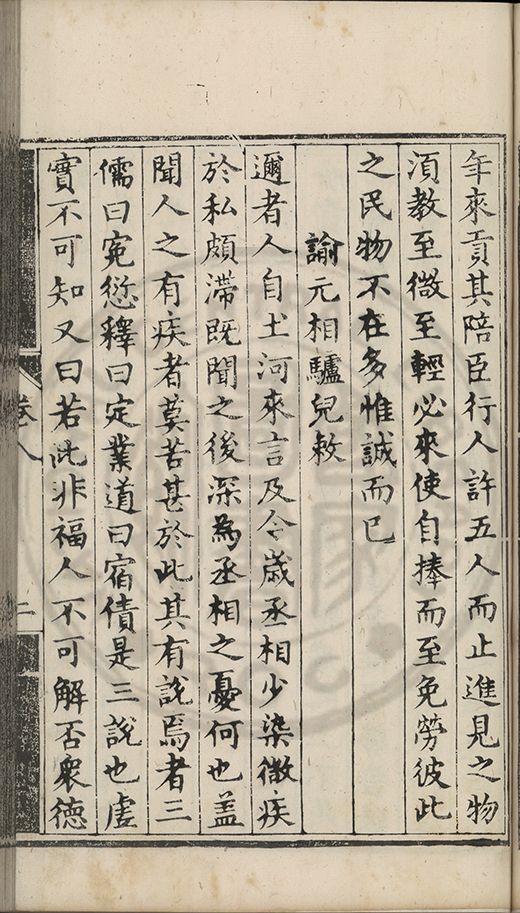 年來貢其陪臣行人許五人而止進見之物
湏教至微至輕必來使自捧而至免勞彼此
之民物不在多惟誠而已
諭元相驢兒敕
邇者人自土河來言及今歲丞相少染微疾
於私頗滯既聞之後深為丞相之憂何也盖
聞人之有疾者莫苦甚於此其有說焉者三
儒曰寃愆釋曰定業道曰宿債是三說也虛
實不可知又曰若此非福人不可解否衆德
卷八
二